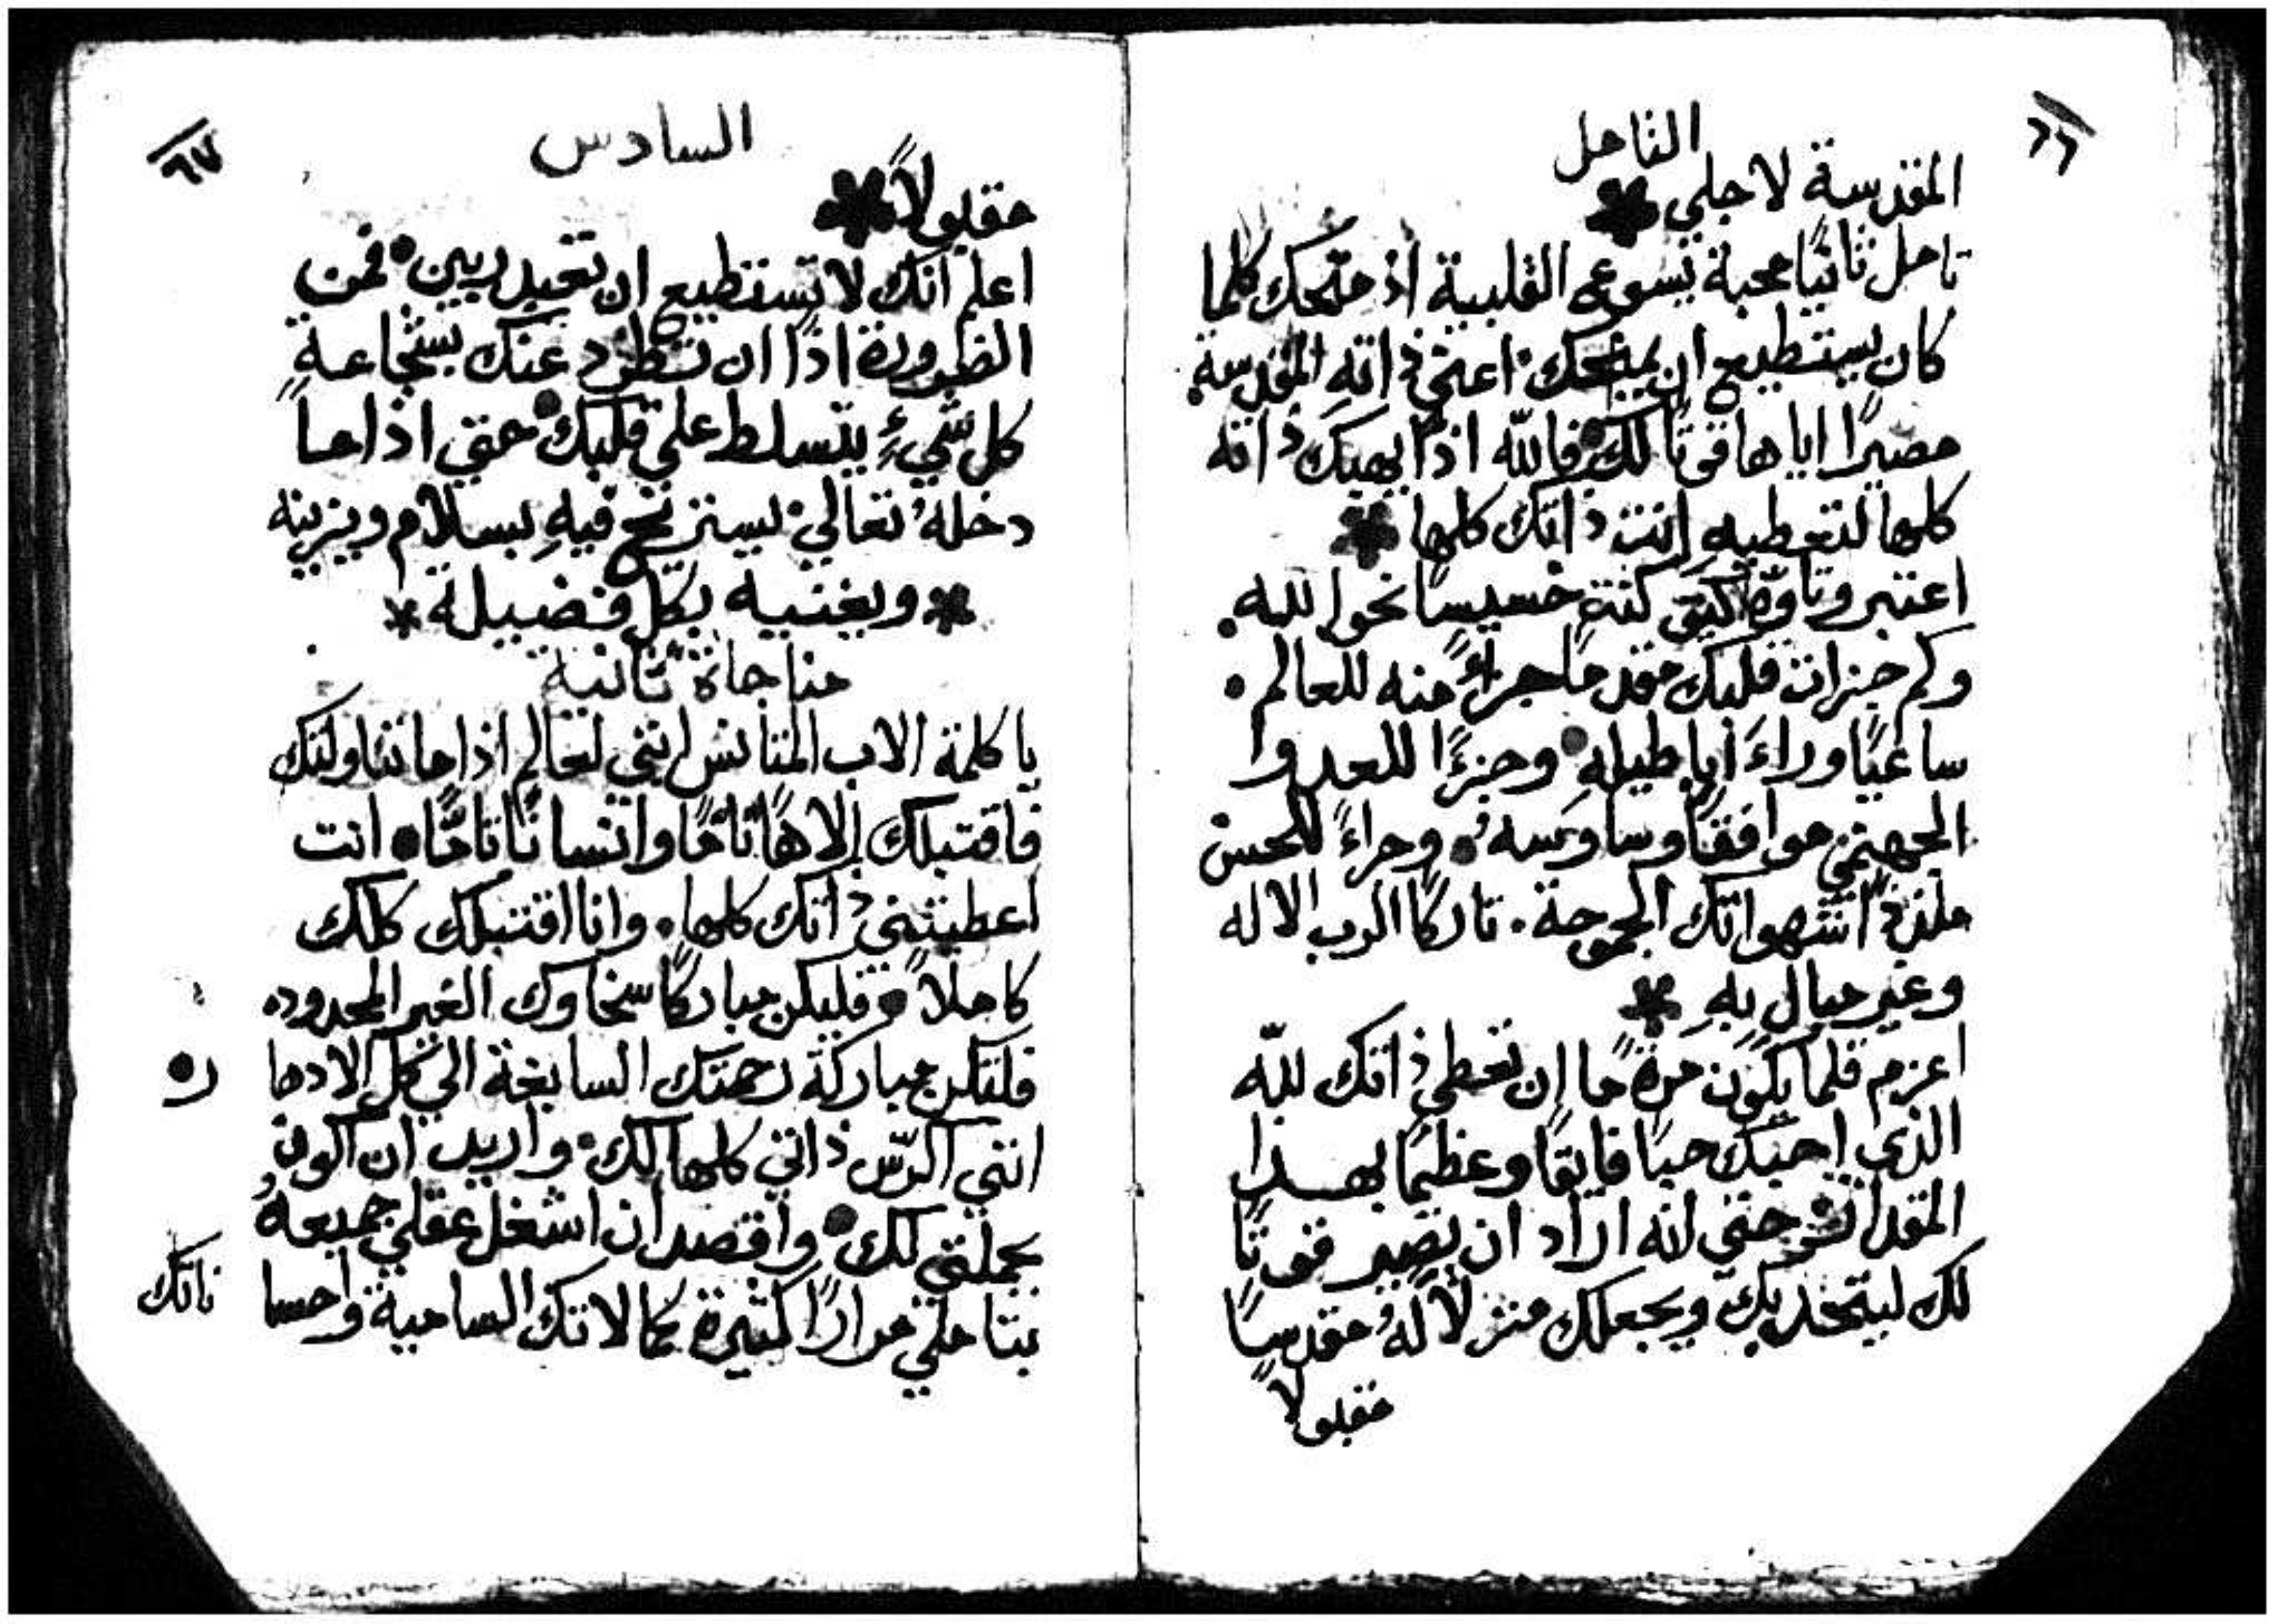 ٦٦
التامل
المقدسة لاجلي
تامل ثانيًا محبة يسوع القلبية اذ منحك كلما
كان يستطيع ان يمنحك اعني ذاته المقدسة
مصيرًا اياها قوتًا لك فاللّه اذًا يهبك ذاته
كلها لتعطيه انت ذاتك كلها
اعتبر وتاوّه كيف كنت خسيسًا نحو الله
وكم جزات قلبك مقدمًا جزاءً منه للعالم
ساعيًا وراءَ اباطيله وجزءًا للعدو ا
الجهنمي موافقًا وساوسه وجزاءً للحس
ملذذًا شهواتك الجموحة تاركًا الرب الاله
وغير مبالٍ بهِ
اعزم قلما يكون مرةً ما ان تعطي ذاتك للّه
الذي احبك حبًا فايقًا وعظيمًا بهذا
المقدار حتي انه اراد ان يصير قوتًا
لك ليتحد بك ويجعلك منزلاً لهُ مقدسًا
مقبولاً
٦٧
السادس
مقبولاً
اعلم انك لا تستطيع ان تعبد ربين فمن
الضرورة اذًا ان تطرد عنك بشجاعةٍ
كل شيءٍ يتسلط علي قلبك حتي اذا ما
دخلهُ تعالي يستريح فيهِ بسلام ويزينه
ويغنيه بكل فضيلة
مناجاة ثانية
يا كلمة الاب المتانس انني لعالم اذا ما تناولتك
فاقتبلك إلاهًا تامًا وانسانًا تامًا انت
اعطيتني ذاتك كلها وانا اقتبلك كلك
كاملاً فليكن مباركًا سخاوك الغير المحدود
فلتكن مباركة رحمتك السابغة الي كل الادها
ر
انني اكرّس ذاتي كلها لك واريد ان اكون
بجملتي لك واقصد ان اشغل عقلي جميعهُ
بتاملي مرارًا كثيرة كمالاتك السامية واحسا
ناتك